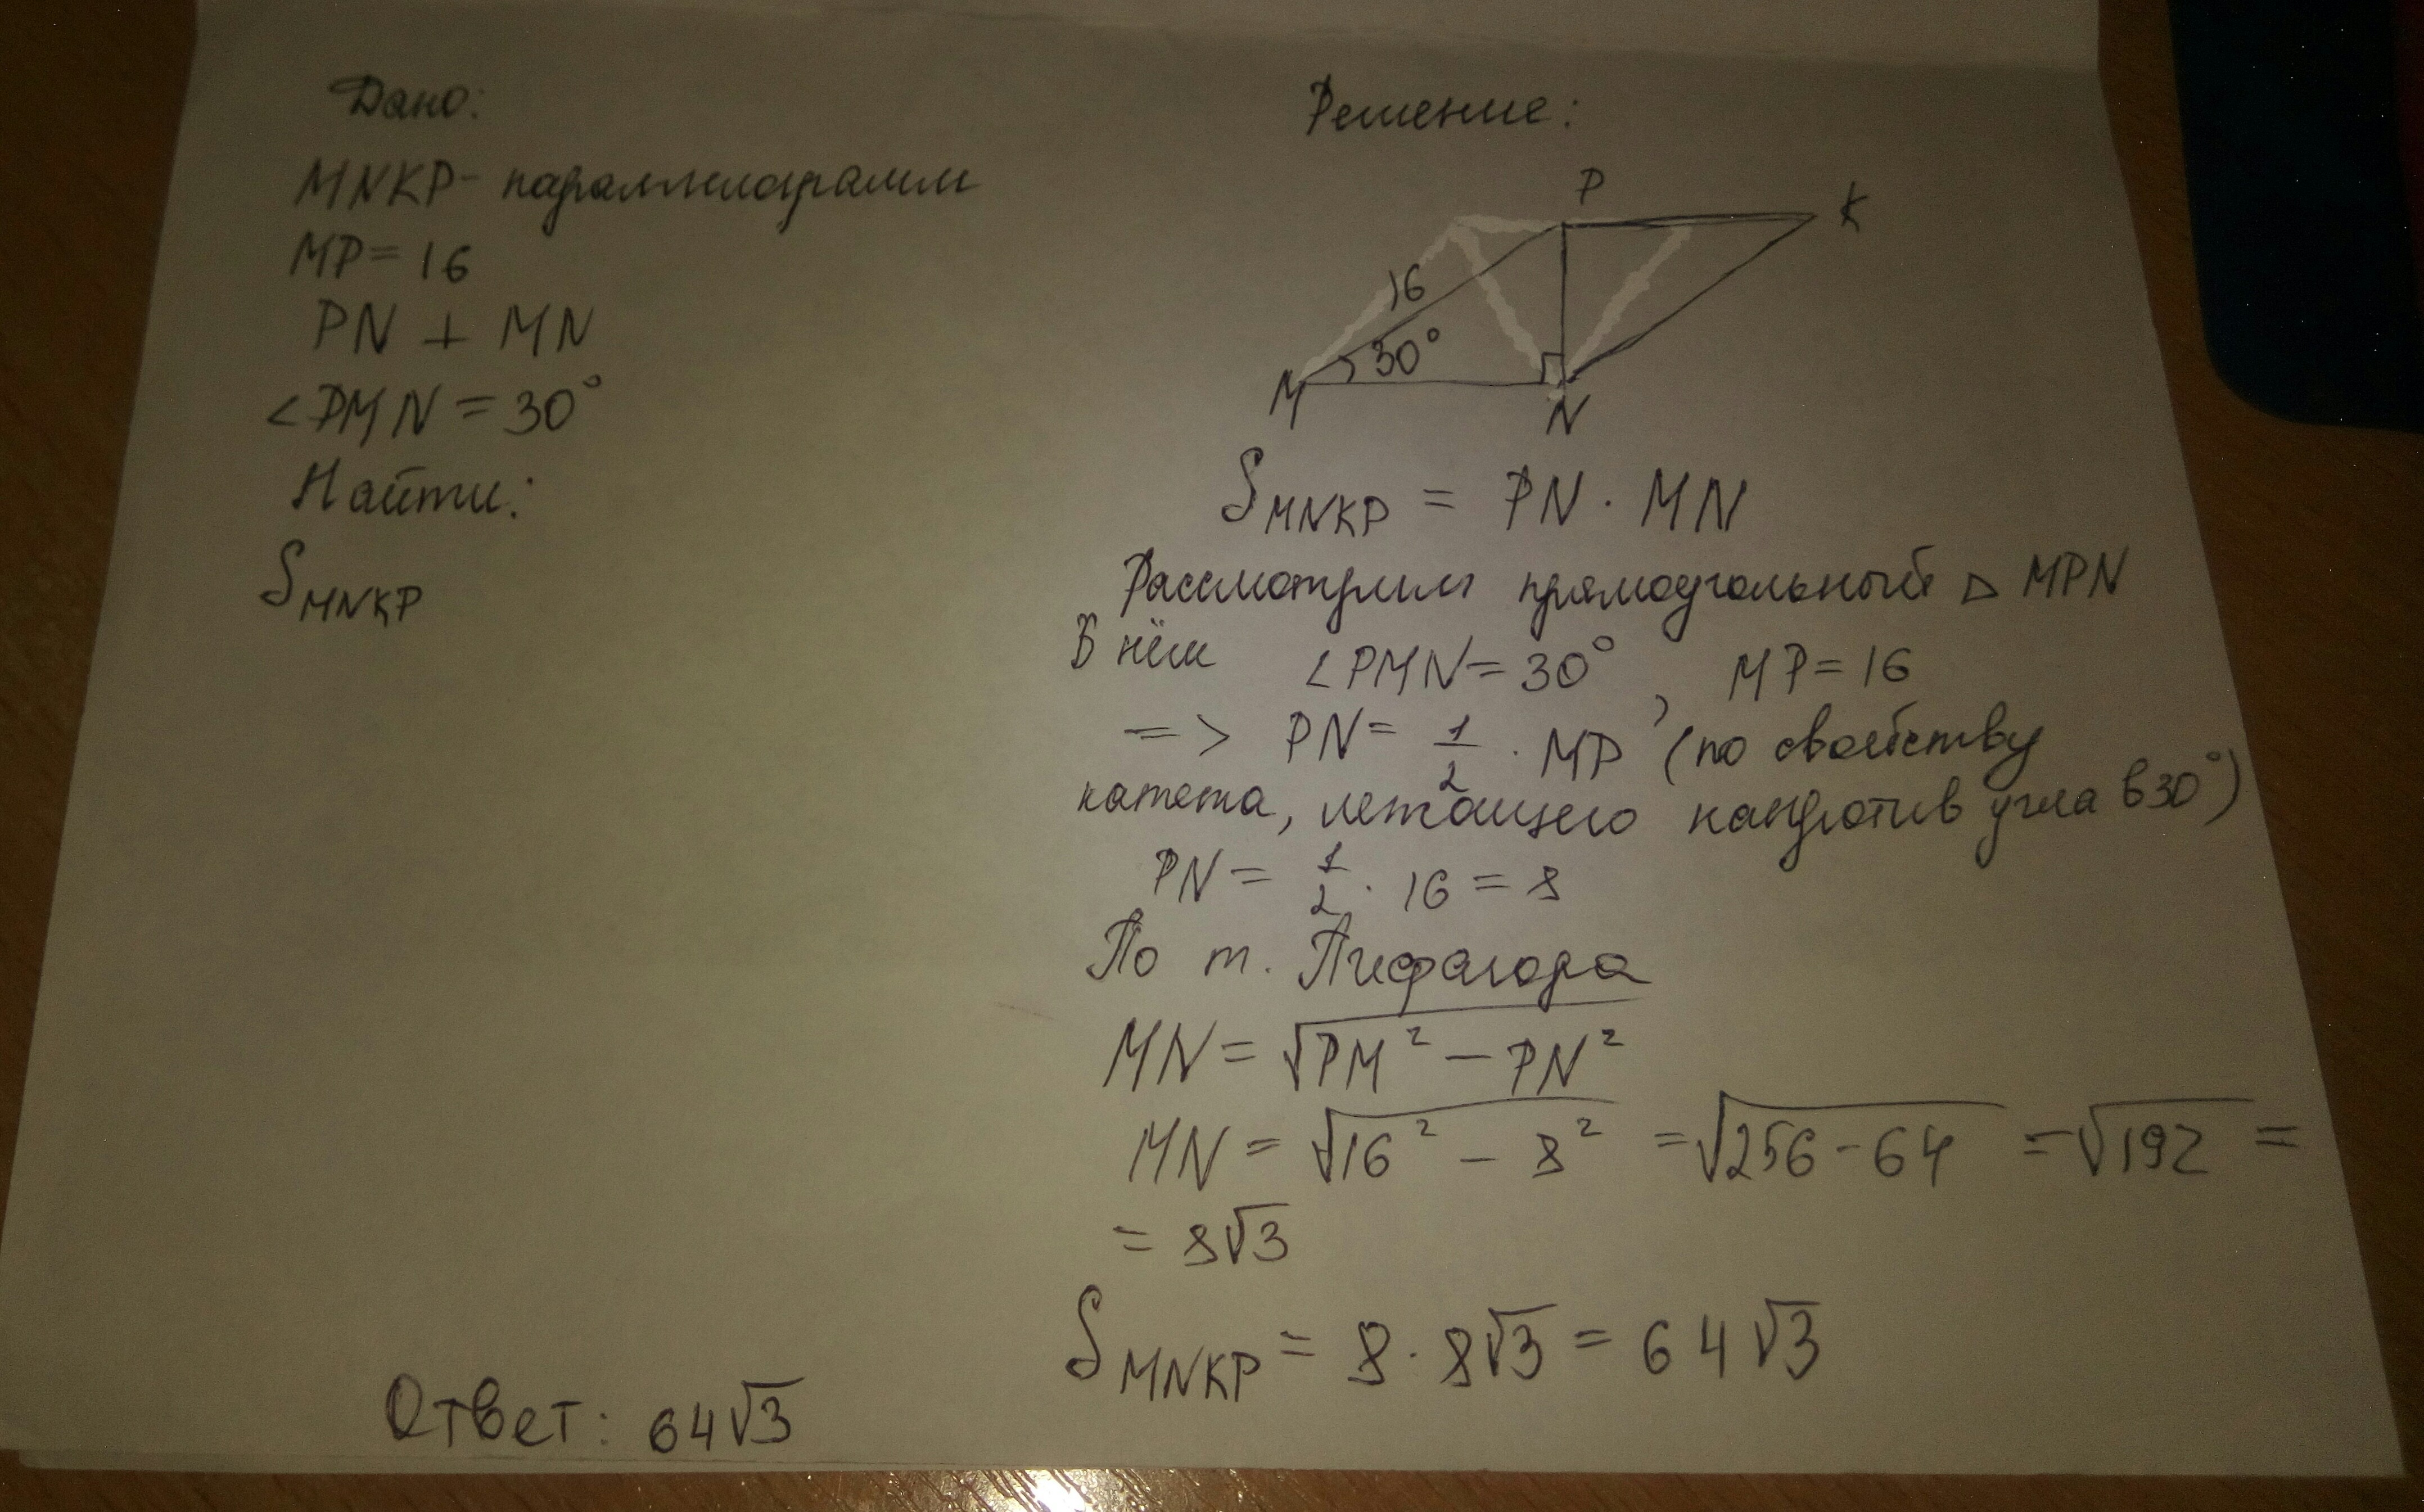 Дано:
MNKP - параллелограмм
MP = 16
PN ⊥ MN
∠PMN = 30°
Найти:
S MNKP
Решение:
P
K
16
30°
M
N
S MNKP = PN · MN
Рассмотрим прямоугольный △ MPN
В нём ∠PMN = 30°, MP = 16
=> PN = 1/2 · MP (по свойству
катета, лежащего напротив угла в 30°)
PN = 1/2 · 16 = 8
По т. Пифагора
MN = √(PM² − PN²)
MN = √(16² − 8²) = √(256 − 64) = √192 =
= 8√3
S MNKP = 8 · 8√3 = 64√3
Ответ: 64√3